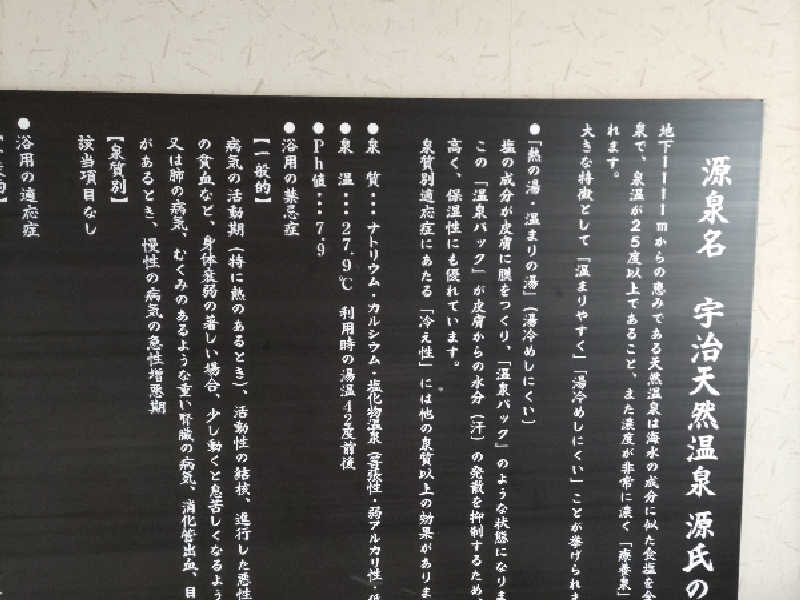 源泉名 宇治天然温泉 源氏の
地下1111mからの恵みである天然温泉は海水の成分に似た食塩を含
泉で、泉温が25度以上であること、また濃度が非常に濃く「療養泉」
れます。
大きな特徴として「温まりやすく」「湯冷めしにくい」ことが挙げられま
●「熱の湯・温まりの湯」(湯冷めしにくい)
塩の成分が皮膚に膜をつくり、「温泉パック」のような状態になりま
この「温泉パック」が皮膚からの水分(汗)の発散を抑制するため、
高く、保温性にも優れています。
泉質別適応症にあたる「冷え性」には他の泉質以上の効果がありま
●泉 質・・・ナトリウム・カルシウム・塩化物温泉(高張性・弱アルカリ性・低
●泉 温・・・27.9℃ 利用時の湯温42度前後
●Ph値・・・7.9
●浴用の禁忌症
【一般的】
病気の活動期(特に熱のあるとき)、活動性の結核、進行した悪性
の貧血など、身体衰弱の著しい場合、少し動くと息苦しくなるよう
又は肺の病気、むくみのあるような重い腎臓の病気、消化管出血、目
があるとき、慢性の病気の急性増悪期
【泉質別】
該当項目なし
●浴用の適応症